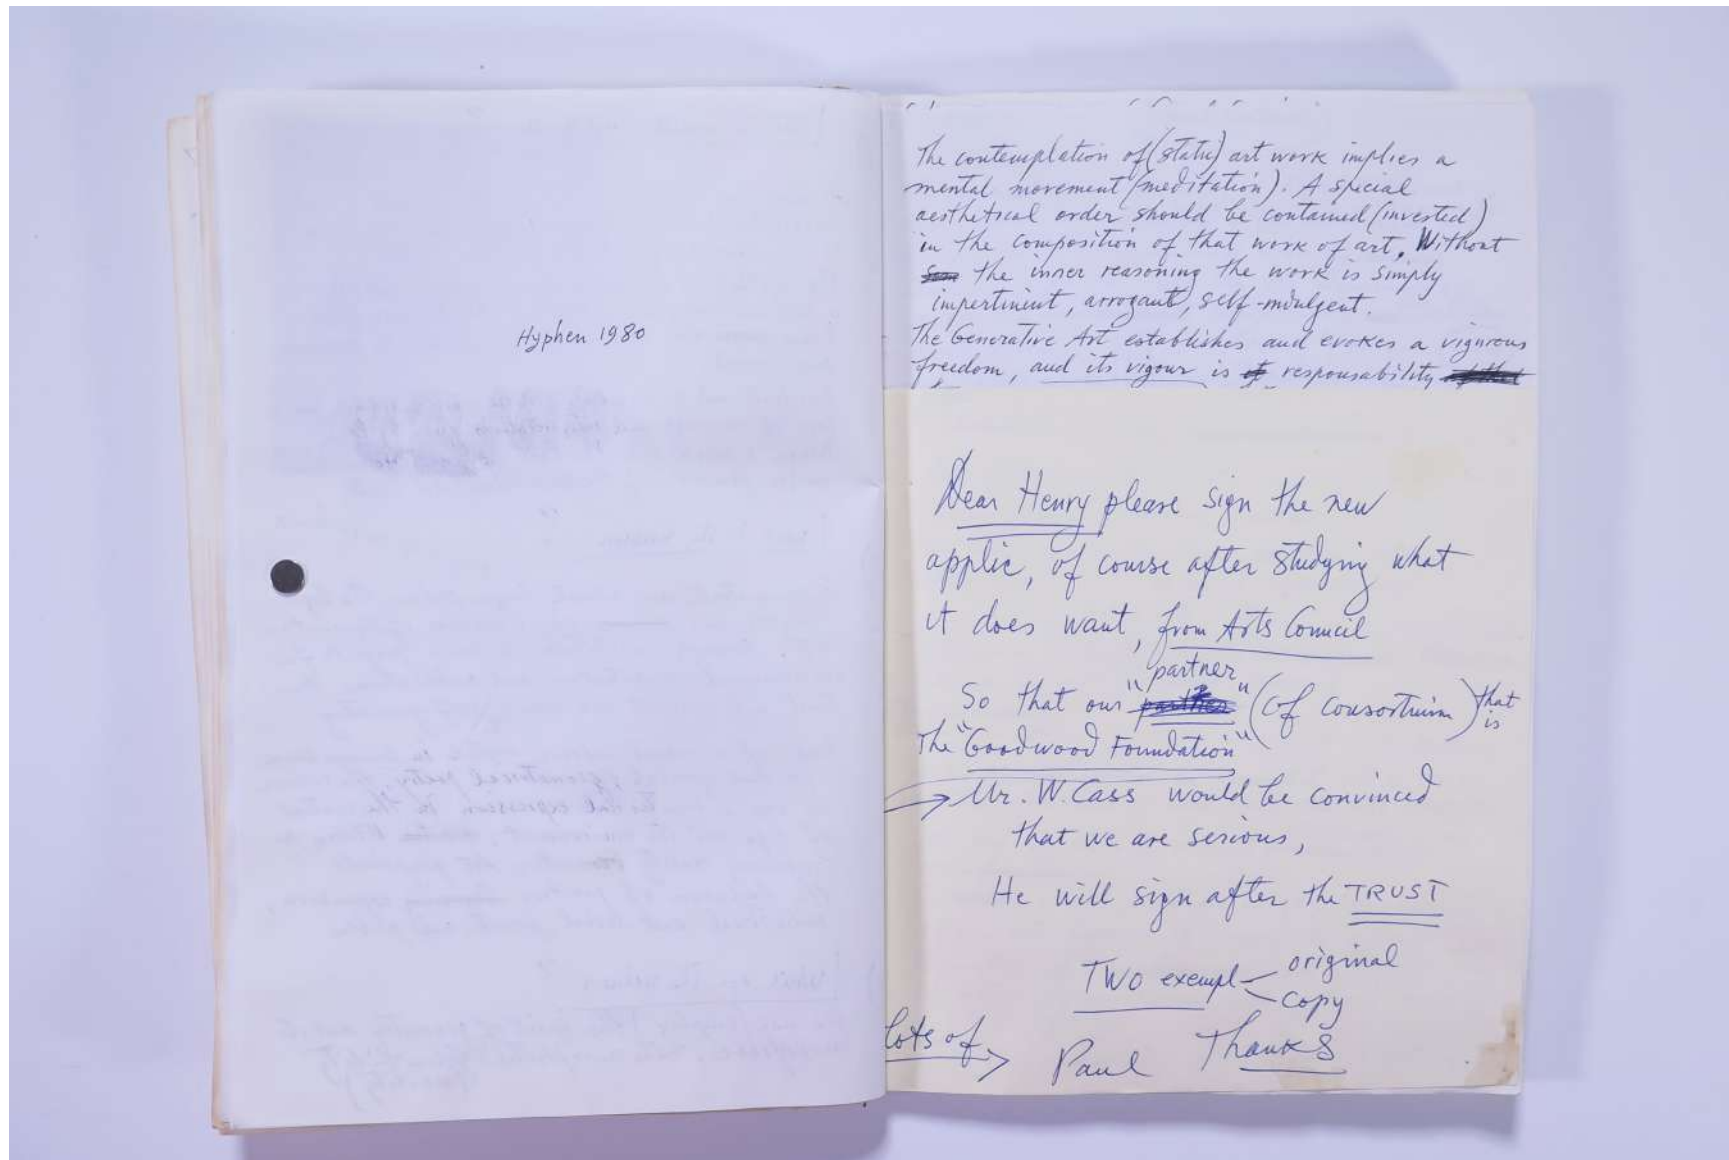 Hyphen 1980
The contemplation of (static) art work implies a
mental movement (meditation). A special
aesthetical order should be contained (invested)
in the composition of that work of art. Without
the inner reasoning the work is simply
impertinent, arrogant, self-indulgent.
The Generative Art establishes and evokes a vigurous
freedom, and its vigour is responsability
Dear Henry please sign the new
applic, of course after studying what
it does want, from Arts Council
partner
So that our " " (of consortium) that is
the "Goodwood Foundation"
Mr. W. Cass would be convinced
that we are serious,
He will sign after the TRUST
TWO exempl original
copy
lots of Thanks
Paul